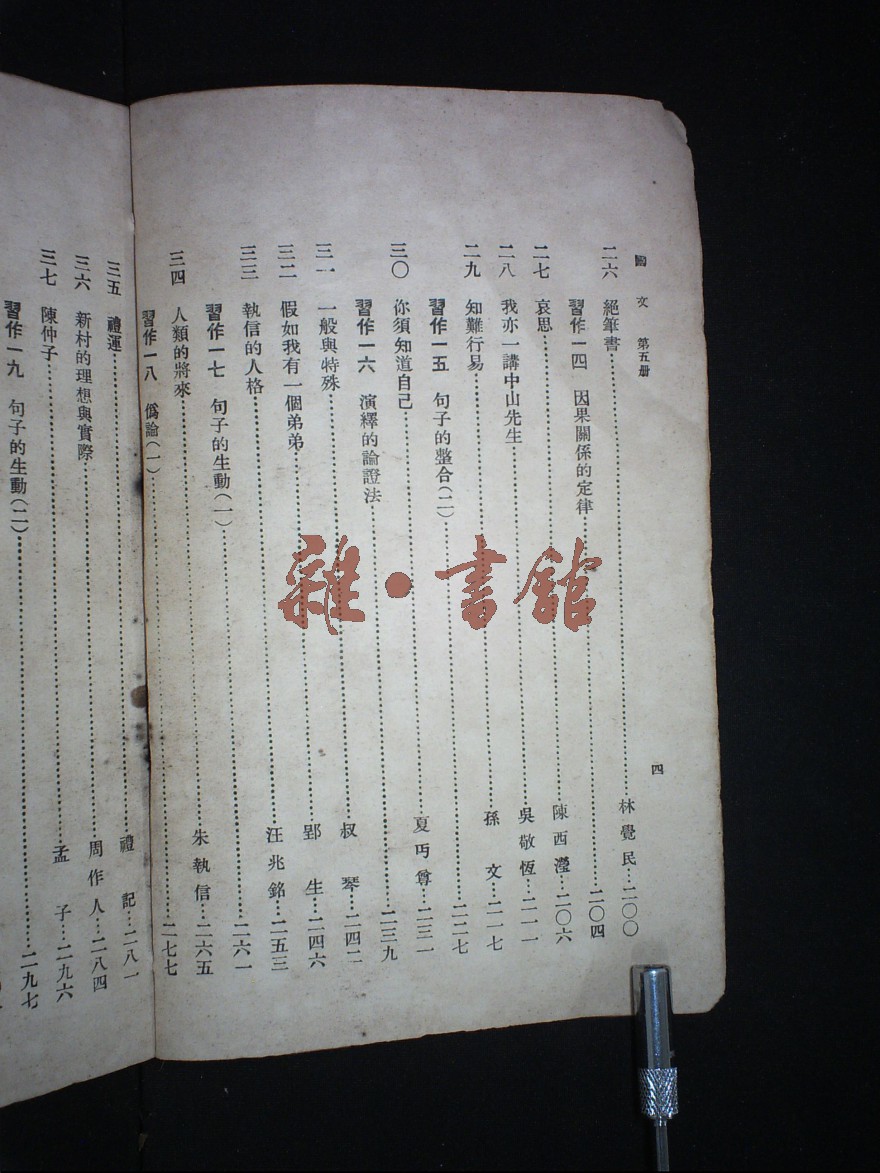 國文 第五册
四
二六 絕筆書……林覺民…二〇〇
習作一四 因果關係的定律……二〇四
二七 哀思……陳西瀅…二〇六
二八 我亦一講中山先生……吳敬恆…二一一
二九 知難行易……孫文…二一七
習作一五 句子的整合(二)……二二七
三〇 你須知道自己……夏丏尊…二三一
習作一六 演繹的論證法……二三九
三一 一般與特殊……叔琴…二四二
三二 假如我有一個弟弟……郢生…二四六
三三 執信的人格……汪兆銘…二五三
習作一七 句子的生動(一)……二六一
三四 人類的將來……朱執信…二六五
習作一八 僞論(一)……二七七
三五 禮運……禮記…二八一
三六 新村的理想與實際……周作人…二八四
三七 陳仲子……孟子…二九六
習作一九 句子的生動(二)……二九七
雜·書館